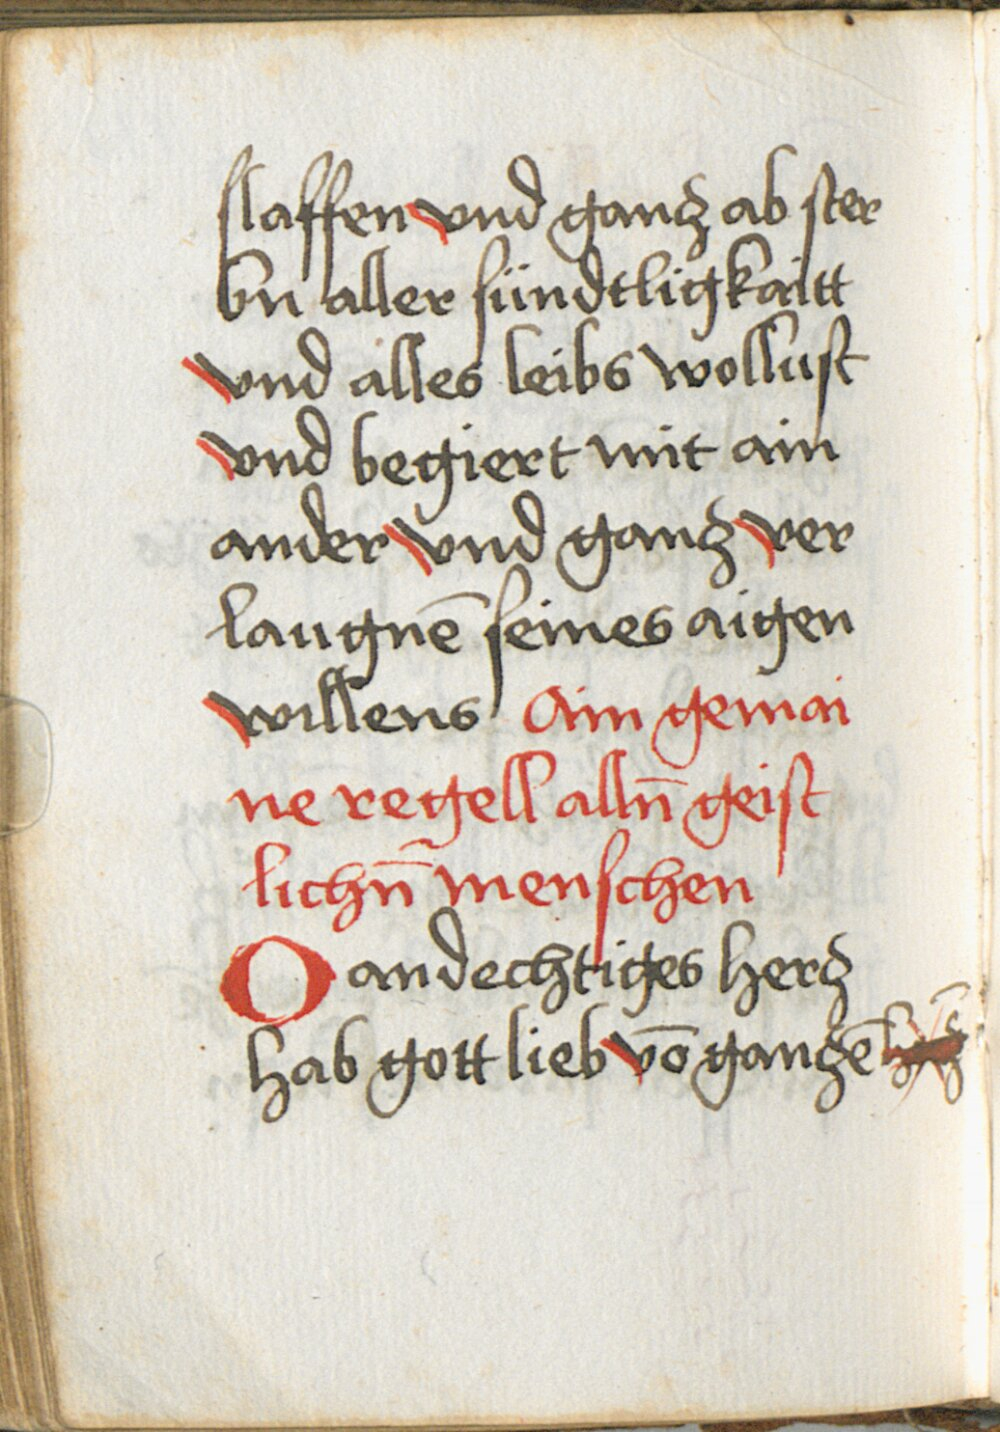 slaffen vnd ganz ab ster
bn aller sündtligkaitt
vnd alles leibs wollust
vnd begiert mit ain
ander vnd ganz ver
laugnē seines aigen
willens Ain gemai
ne regell alln̄ geist
lichn̄ menschen
O andechtiges herz
hab gott lieb vō ganzē